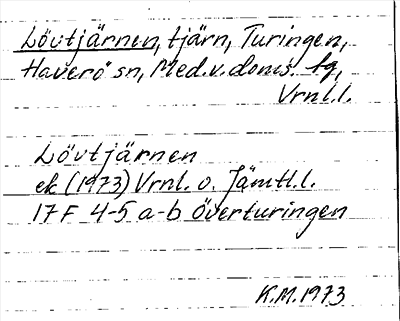 Lövtjärnen, tjärn, Turingen,
Haverö sn, Med.v.doms. tg,
Vrnl.l.
Lövtjärnen
ek (1973) Vrnl. o. Jämtl.l.
17 F 4-5 a-b Överturingen
K.M. 1973